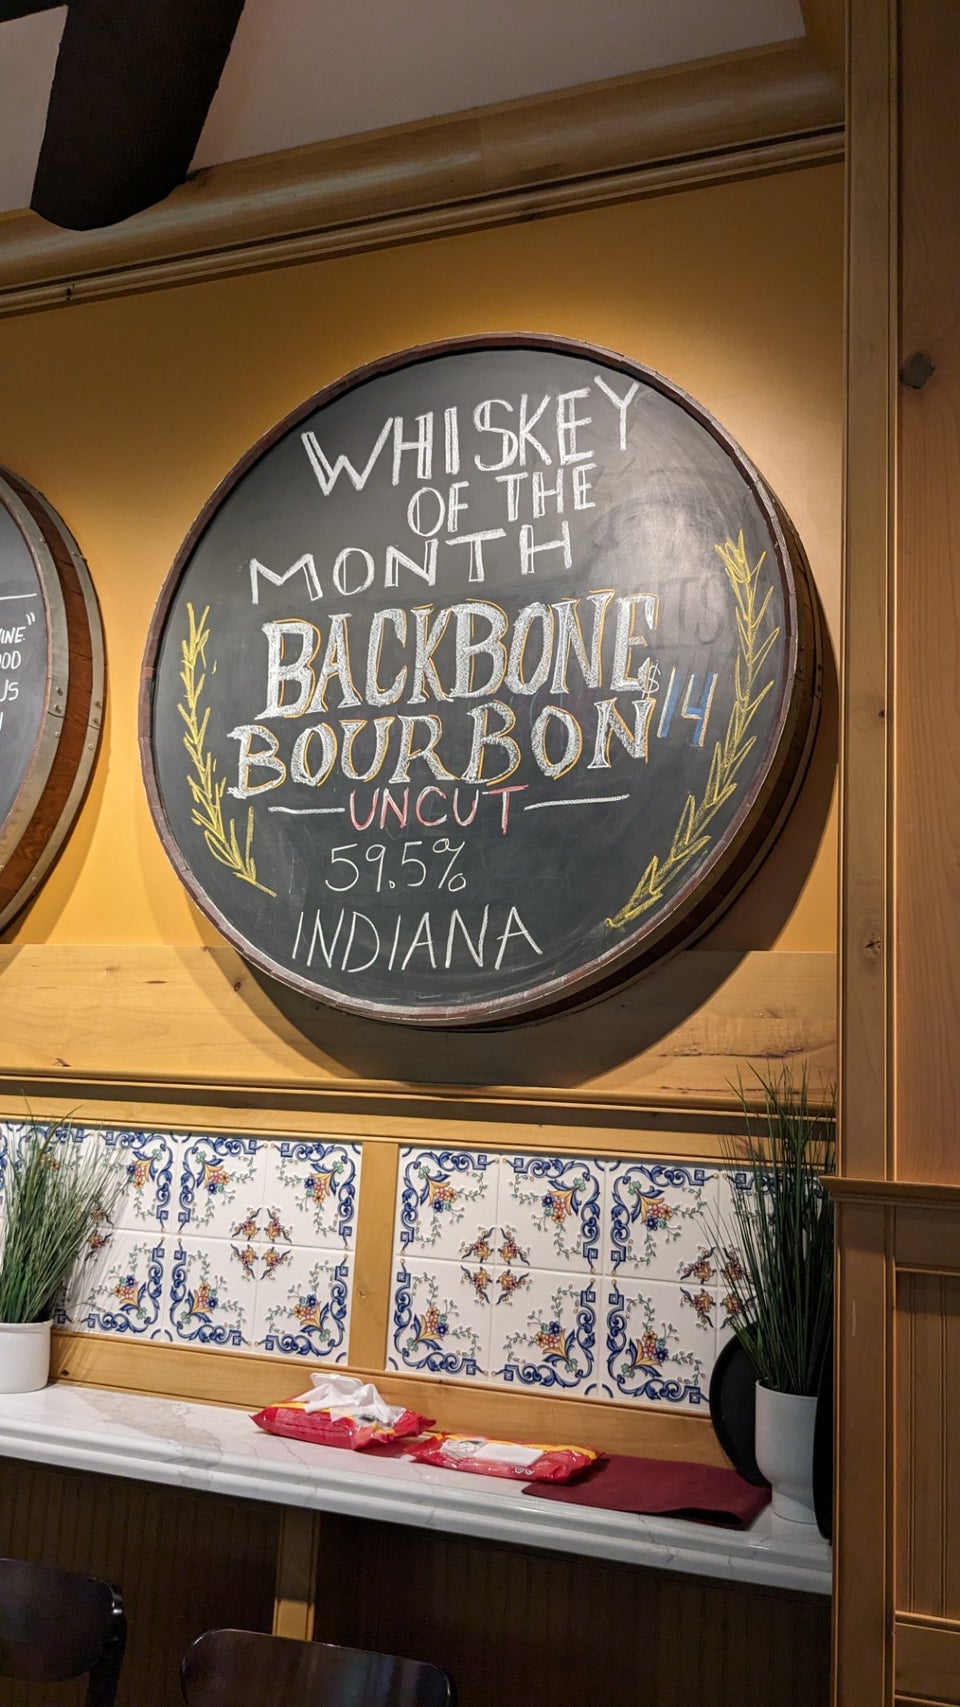 WHISKEY
OF THE
MONTH
BACKBONE
BOURBON $14
UNCUT
59.5%
INDIANA